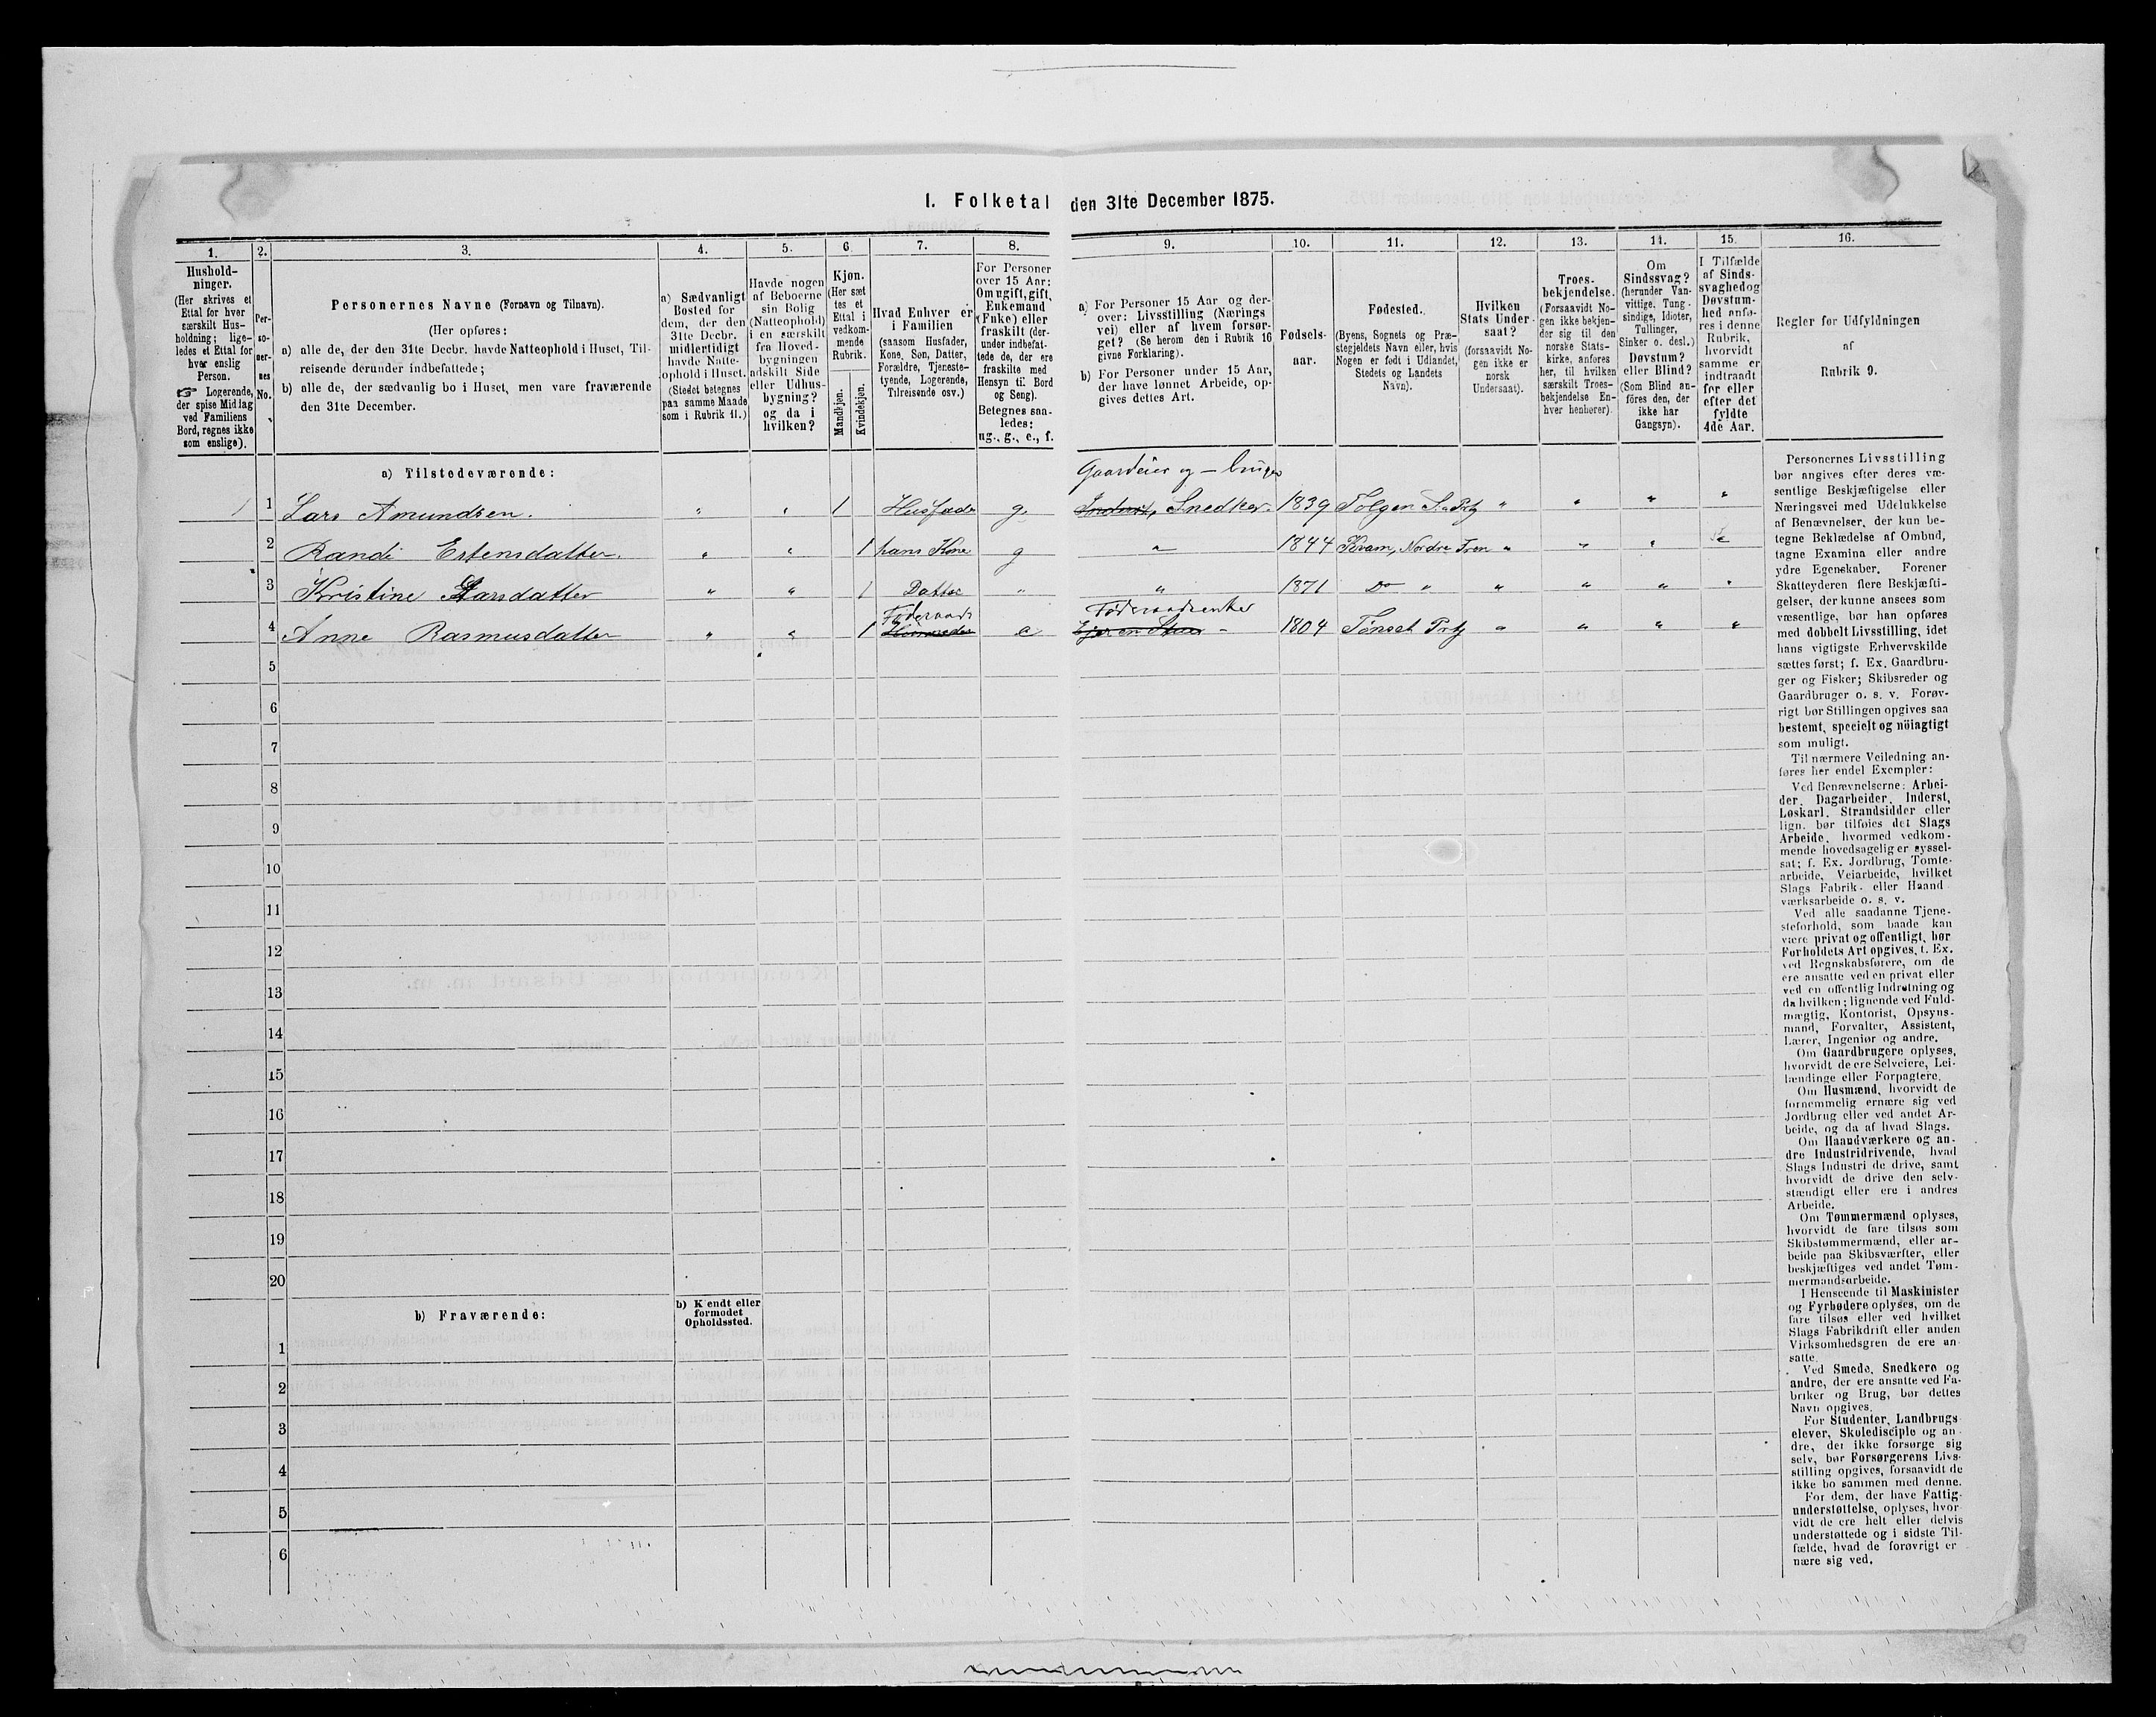 I. Folketal den 31te December 1875.
1. 2. 3. 4. 5. 6 7. 8. 9. 10. 11. 12. 13. 14. 15. 16.
Hushold-
ninger.
(Her skrives et
Ettal for hver
særskilt Hus-
holdning; lige-
ledes et Ettal for
hver enslig
Person.
☞ Logerende,
der spise Middag
ved Familiens
Bord, regnes ikke
som enslige).
Per-
so-
ner-
nes
No.
Personernes Navne (Fornavn og Tilnavn).
(Her opføres:
a) alle de, der den 31te Decbr. havde Natteophold i Huset, Til-
reisende derunder indbefattede;
b) alle de, der sædvanlig bo i Huset, men vare fraværende
den 31te December.
a) Sædvanligt
Bosted for
dem, der den
31te Decbr.
midlertidigt
havde Natte-
ophold i Huset.
(Stedet betegnes
paa samme Maade
som i Rubrik 11.)
Havde nogen
af Beboerne
sin Bolig
(Natteophold)
i en særskilt
fra Hoved-
bygningen
adskilt Side
eller Udhus-
bygning?
og da i
hvilken?
Kjøn.
(Her sæt
tes et
Ettal i
vedkom-
mende
Rubrik.
Mandkjøn.
Kvindekjøn.
Hvad Enhver er
i Familien
(saasom Husfader,
Kone, Søn, Datter,
Forældre, Tjeneste-
tyende, Logerende,
Tilreisende osv.)
For Personer
over 15 Aar:
Om ugift, gift,
Enkemand
(Enke) eller
fraskilt (der-
under indbefat-
tede de, der ere
fraskilte med
Hensyn til Bord
og Seng).
Betegnes saa-
ledes:
ug., g., e., f.
a) For Personer 15 Aar og der-
over: Livsstilling (Nærings
vei) eller af hvem forsør-
get? (Se herom den i Rubrik 16
givne Forklaring).
b) For Personer under 15 Aar,
der have lønnet Arbeide, op-
gives dettes Art.
Fødsels-
aar.
Fødested.
(Byens, Sognets og Præ-
stegjeldets Navn eller, hvis
Nogen er født i Udlandet,
Stedets og Landets
Navn).
Hvilken
Stats Under-
saat?
(forsaavidt No-
gen ikke er
norsk
Undersaat).
Troes-
bekjendelse.
(Forsaavidt No-
gen ikke bekjen-
der sig til den
norske Stats-
kirke, anføres
her, til hvilken
særskilt Troes-
bekjendelse En-
hver henhører).
Om
Sindssvag?
(herunder Van-
vittige, Tung-
sindige, Idioter,
Tullinger,
Sinker o. desl.)
Døvstum?
eller Blind?
(Som Blind an-
føres den, der
ikke har
Gangsyn).
I Tilfælde
af Sinds-
svaghed og
Døvstum-
hed anfø-
res i denne
Rubrik,
hvorvidt
samme er
indtraadt
før eller
efter det
fyldte
4de Aar.
Regler for Udfyldningen
af
Rubrik 9.
a) Tilstedeværende:
Gaardeier og – bruger
1 1 Lars Amundsen. " " 1 Husfader g. Snedker. 1839 Tolgen " " " "
2 Randi Estensdatter. " " 1 hans Kone g " 1844 Kvam, Nordre Fron " " "
3 Kristine Larsdatter " " 1 Datter " " 1871 Do " " " " "
Føderaads Føderaadsenke
4 Anne Rasmusdatter " " 1 e 1804 Tønset " " " "
5
6
7
8
9
10
11
12
13
14
15
16
17
18
19
20
b) Fraværende:
b) Kjendt eller
formodet
Opholdssted.
1
2
3
4
5
6
Personernes Livsstilling
bør angives efter deres væ-
sentlige Beskjæftigelse eller
Næringsvei med Udelukkelse
af Benævnelser, der kun be-
tegne Beklædelse af Ombud,
tagne Examina eller andre
ydre Egenskaber. Forener
Skatteyderen flere Beskjæfti-
gelser, der kunne ansees som
væsentlige, bør han opføres
med dobbelt Livsstilling, idet
hans vigtigste Erhvervskilde
sættes først; f. Ex. Gaardbru-
ger og Fisker; Skibsreder og
Gaardbruger o. s. v. Forøv-
rigt bør Stillingen opgives saa
bestemt, specielt og nöiagtigt
som muligt.
Til nærmere Veiledning an-
føres her endel Exempler:
Ved Benævnelserne: Arbei-
der, Dagarbeider, Inderst,
Løskarl, Strandsidder eller
lign. bør tilføies det Slags
Arbeide, hvormed vedkom-
mende hovedsagelig er syssel-
sat; f. Ex. Jordbrug, Tomte-
arbeide, Veiarbeide, hvilket
Slags Fabrik- eller Haand
værksarbeide o. s. v.
Ved alle saadanne Tjene-
steforhold, som baade kan
være privat og offentligt, bør
Forholdets Art opgives, t. Ex.
ved Regnskabsførere, om de
ere ansatte ved en privat eller
ved en offentlig Indretning og
da hvilken; lignende ved Fuld-
mægtig, Kontorist, Opsyns-
mand, Forvalter, Assistent,
Lærer, Ingeniør og andre.
Om Gaardbrugere oplyses,
hvorvidt de ere Selveiere, Lei-
lændinge eller Forpagtere.
Om Husmænd, hvorvidt de
fornemmelig ernære sig ved
Jordbrug eller ved andet Ar-
beide, og da af hvad Slags.
Om Haandværkere og an-
dre Industridrivende, hvad
Slags Industri de drive, samt
hvorvidt de drive den selv-
stændigt eller ere i andres
Arbeide.
Om Tømmermænd oplyses,
hvorvidt de fare tilsøs som
Skibstømmermænd, eller ar-
beide paa Skibsværfter, eller
beskjæftiges ved andet Tøm-
mermandsarbeide.
I Henseende til Maskinister
og Fyrbødere oplyses, om de
fare tilsøs eller ved hvilket
Slags Fabrikdrift eller anden
Virksomhedsgren de ere an-
satte.
Ved Smede, Snedkere og
andre, der ere ansatte ved Fa-
briker og Brug, bør dettes
Navn opgives.
For Studenter, Landbrugs-
elever, Skoledisciple og an-
dre, der ikke forsørge sig
selv, bør Forsørgerens Livs-
stilling opgives, forsaavidt de
ikke bo sammen med denne.
For dem, der have Fattig-
understøttelse, oplyses, hvor-
vidt de ere helt eller delvis
understøttede og i sidste Til-
fælde, hvad de forøvrigt er-
nære sig ved.